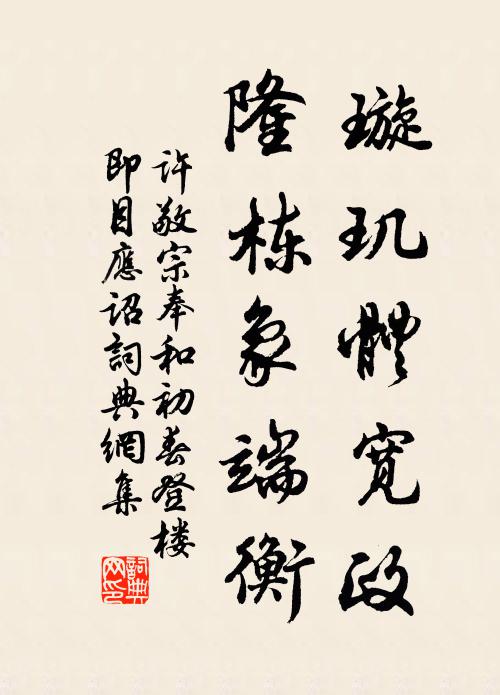 璇玑體宽政
隆栋象端衡
许敬宗奉和初春登楼
即目應诏詞典網集
詞典网印